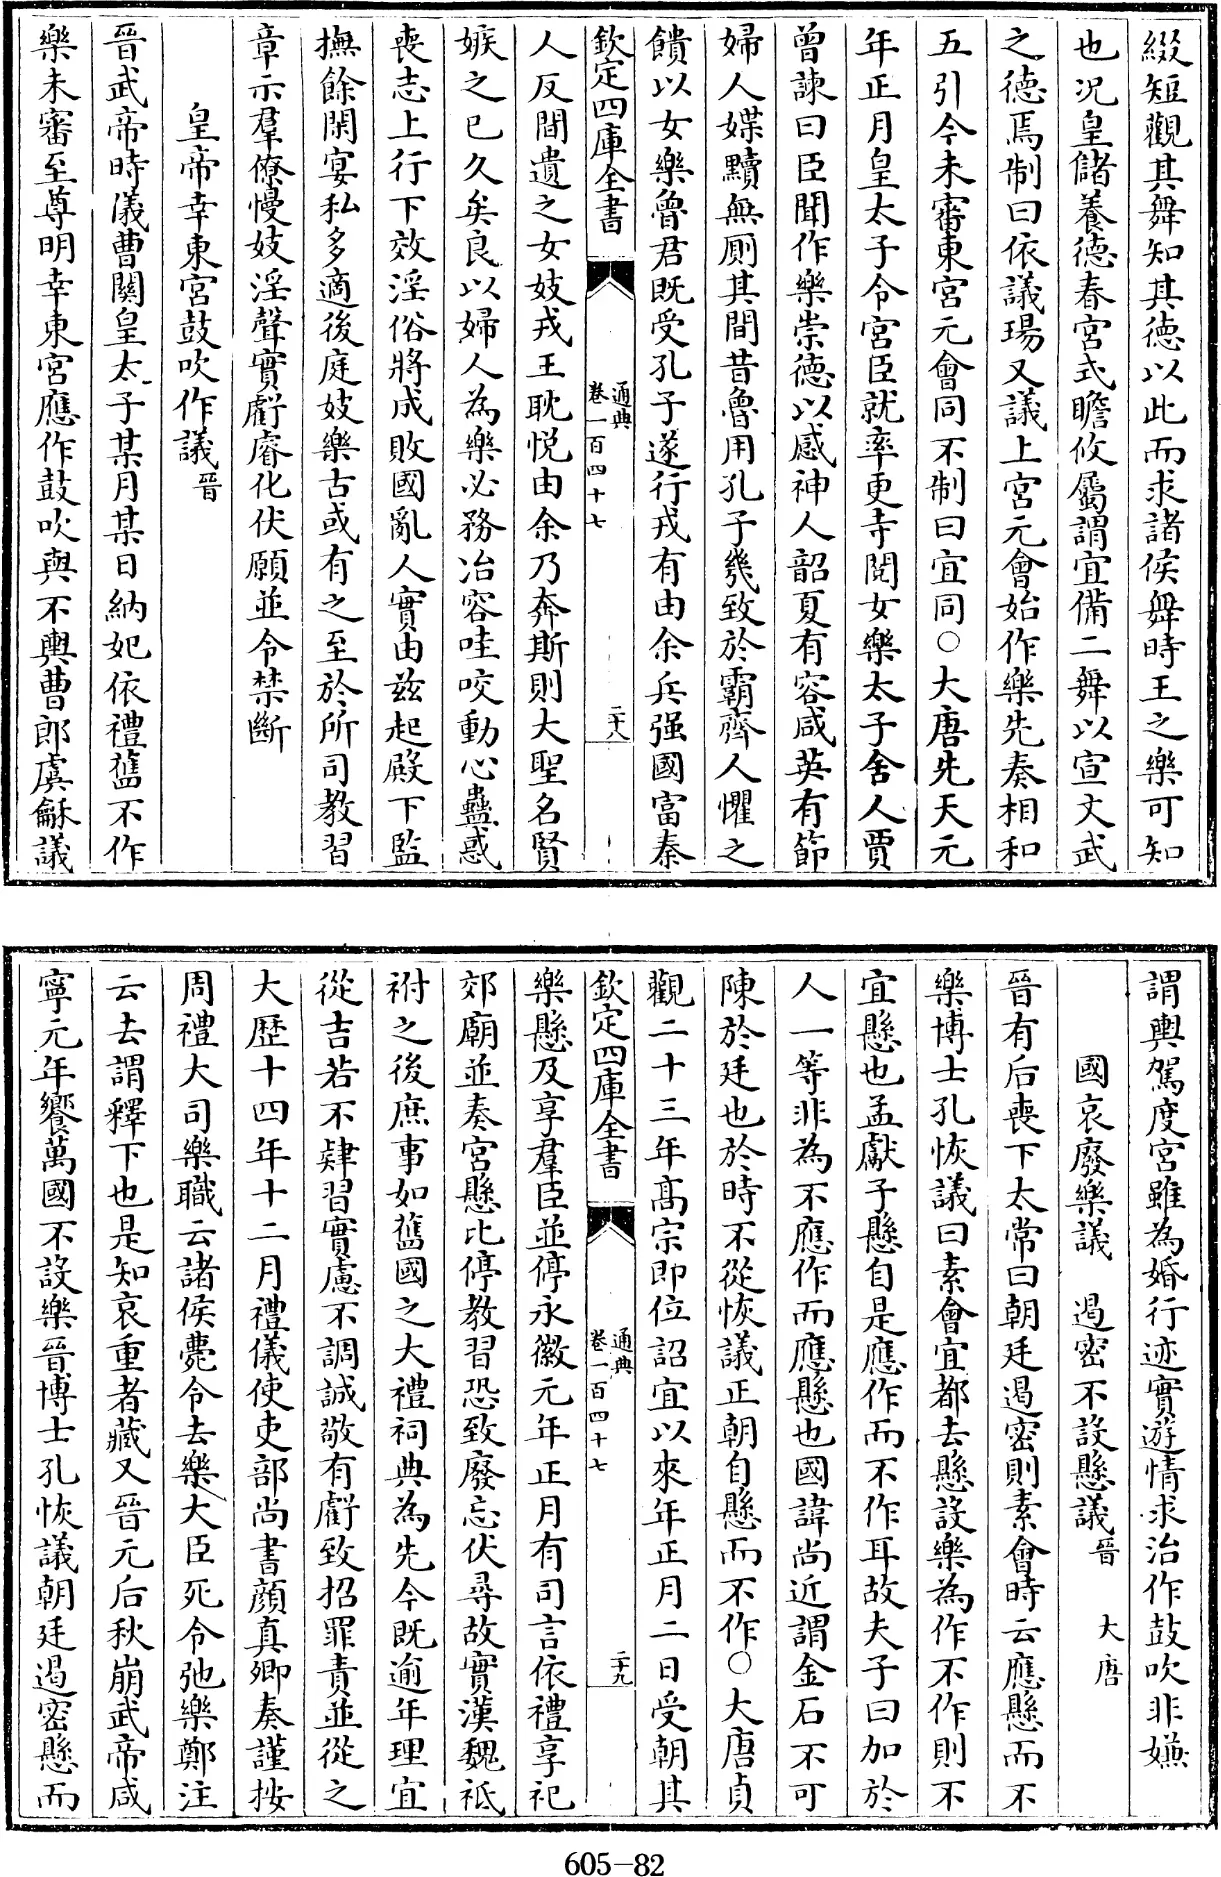 綴短觀其舞知其德以此而求諸侯舞時王之樂可知
也况皇儲養德春宮式瞻攸屬謂宜備二舞以宣文武
之德焉制曰依議瑒又議上宮元會始作樂先奏相和
五引今未審東宮元會同不制曰宜同○大唐先天元
年正月皇太子令宮臣就率更寺閲女樂太子舍人賈
曾諫曰臣聞作樂崇德以感神人韶夏有容咸英有節
婦人媟黷無厠其間昔魯用孔子幾致於霸齊人懼之
饋以女樂魯君既受孔子遂行戎有由余兵强國富秦
欽定四庫全書
通典
卷一百四十七
二十八
人反間遺之女妓戎王耽悦由余乃奔斯則大聖名賢
嫉之已久矣良以婦人為樂必務冶容哇咬動心蠱惑
喪志上行下效淫俗將成敗國亂人實由兹起殿下監
撫餘閑宴私多適後庭妓樂古或有之至於所司教習
章示羣僚慢妓淫聲實虧睿化伏願並令禁斷
皇帝幸東宮鼓吹作議晉
晉武帝時儀曹關皇太子某月某日納妃依禮舊不作
樂未審至尊明幸東宮應作鼓吹與不輿曹郎虞龢議
謂輿駕度宮雖為婚行迹實遊情求治作鼓吹非嫌
國哀廢樂議 遏密不設懸議晉 大唐
晉有后喪下太常曰朝廷遏密則素會時云應懸而不
樂博士孔恢議曰素會宜都去懸設樂為作不作則不
宜懸也孟獻子懸自是應作而不作耳故夫子曰加於
人一等非為不應作而應懸也國諱尚近謂金石不可
陳於廷也於時不從恢議正朝自懸而不作○大唐貞
觀二十三年高宗即位詔宜以來年正月二日受朝其
欽定四庫全書
通典
卷一百四十七
二十九
樂懸及享羣臣並停永徽元年正月有司言依禮享祀
郊廟並奏宮懸比停教習恐致廢忘伏尋故實漢魏祗
祔之後庶事如舊國之大禮祠典為先今既逾年理宜
從吉若不肄習實慮不調誠敬有虧致招罪責並從之
大歷十四年十二月禮儀使吏部尚書顔真卿奏謹按
周禮大司樂職云諸侯薨令去樂大臣死令弛樂鄭注
云去謂釋下也是知哀重者藏又晉元后秋崩武帝咸
寧元年饗萬國不設樂晉博士孔恢議朝廷遏密懸而
605-82